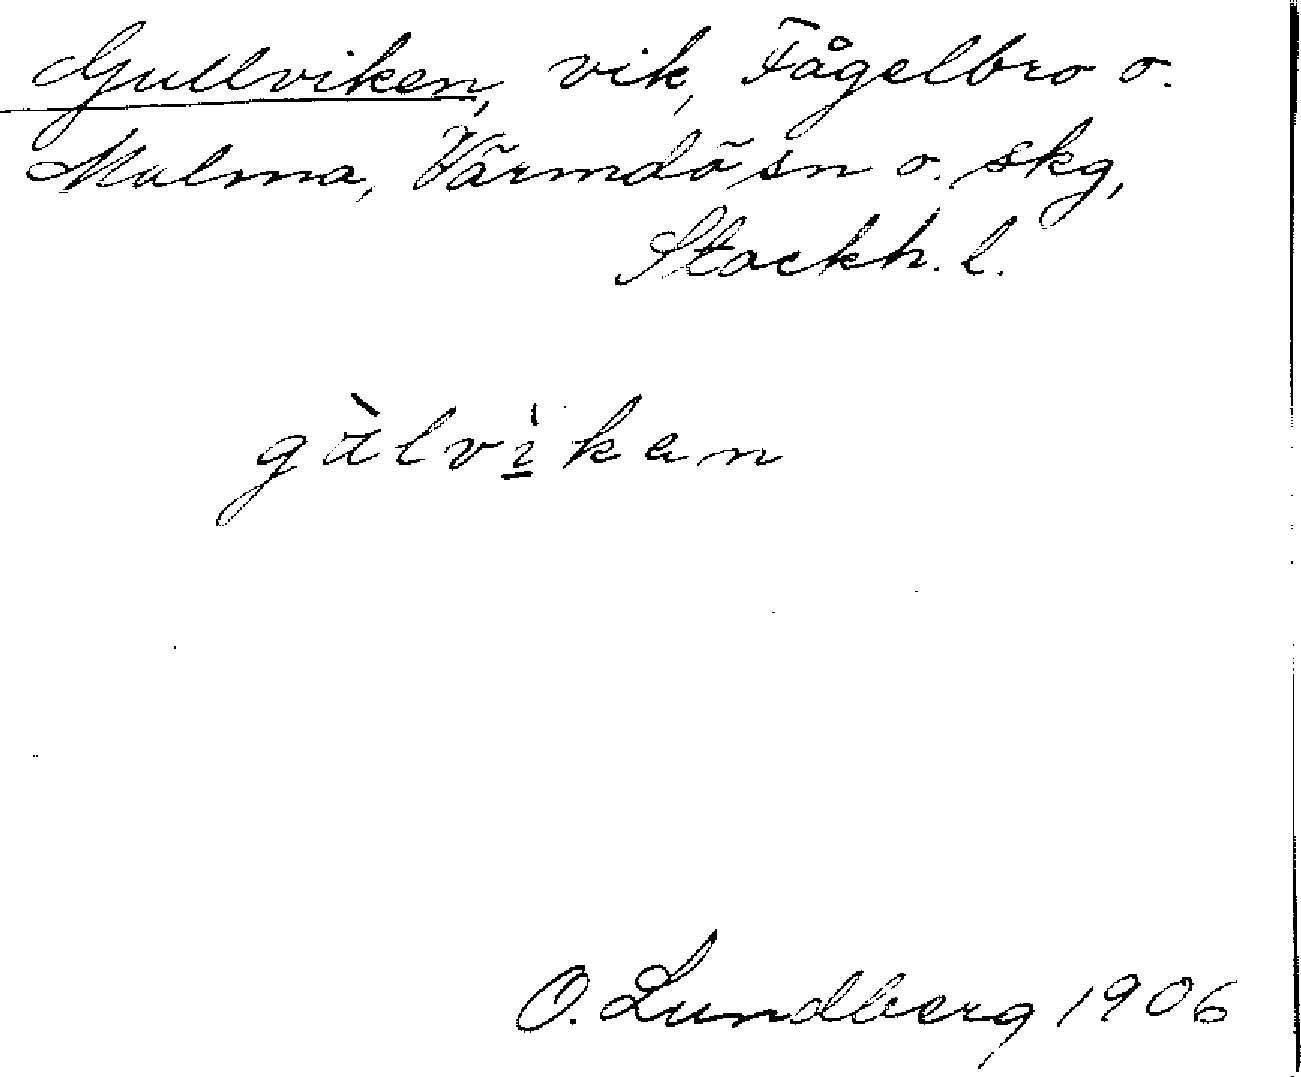 Gullviken, vik, Fågelbro o.
Malma, Värmdö sn o. skg,
Stockh. l.
gàlvìkan
O. Lundberg 1906